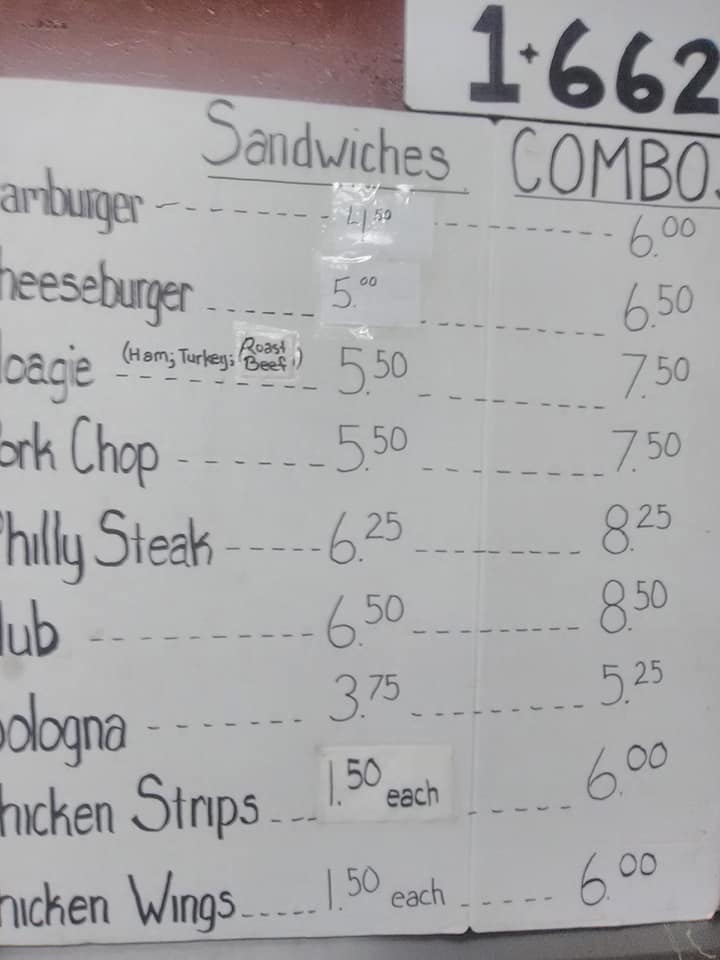 1-662
Sandwiches COMBO
amburger 4.50 6.00
heeseburger 5.00 6.50
oagie (Ham; Turkey; Roast Beef) 5.50 7.50
ork Chop 5.50 7.50
hilly Steak 6.25 8.25
lub 6.50 8.50
ologna 3.75 5.25
hicken Strips 1.50 each 6.00
hicken Wings 1.50 each 6.00